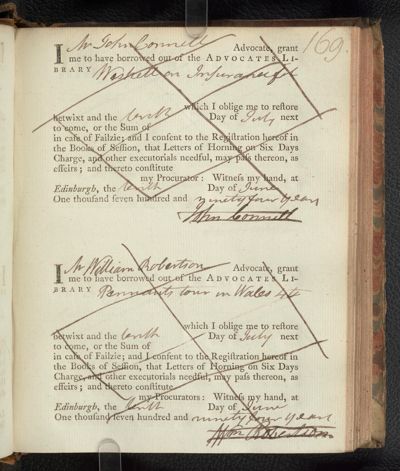 169.
I Mr John Connell Advocate, grant
me to have borrowed out of the ADVOCATES LI-
BRARY on Insurances
which I oblige me to reſtore
betwixt and the tenth Day of July next
to come, or the Sum of
in caſe of Failzie; and I conſent to the Regiſtration hereof in
the Books of Seſſion, that Letters of Horning on Six Days
Charge, and other executorials needful, may paſs thereon, as
effeirs; and thereto conſtitute
my Procurator: Witneſs my hand, at
Edinburgh, the tenth Day of June
One thouſand ſeven hundred and ninety four years
John Connell
I Mr William Robertson Advocate, grant
me to have borrowed out of the ADVOCATES LI-
BRARY Pennants tour in Wales 4to
which I oblige me to reſtore
betwixt and the tenth Day of July next
to come, or the Sum of
in caſe of Failzie; and I conſent to the Regiſtration hereof in
the Books of Seſſion, that Letters of Horning on Six Days
Charge, and other executorials needful, may paſs thereon, as
effeirs; and thereto conſtitute
my Procurator: Witneſs my hand, at
Edinburgh, the tenth Day of June
One thouſand ſeven hundred and ninety four years
Robertson